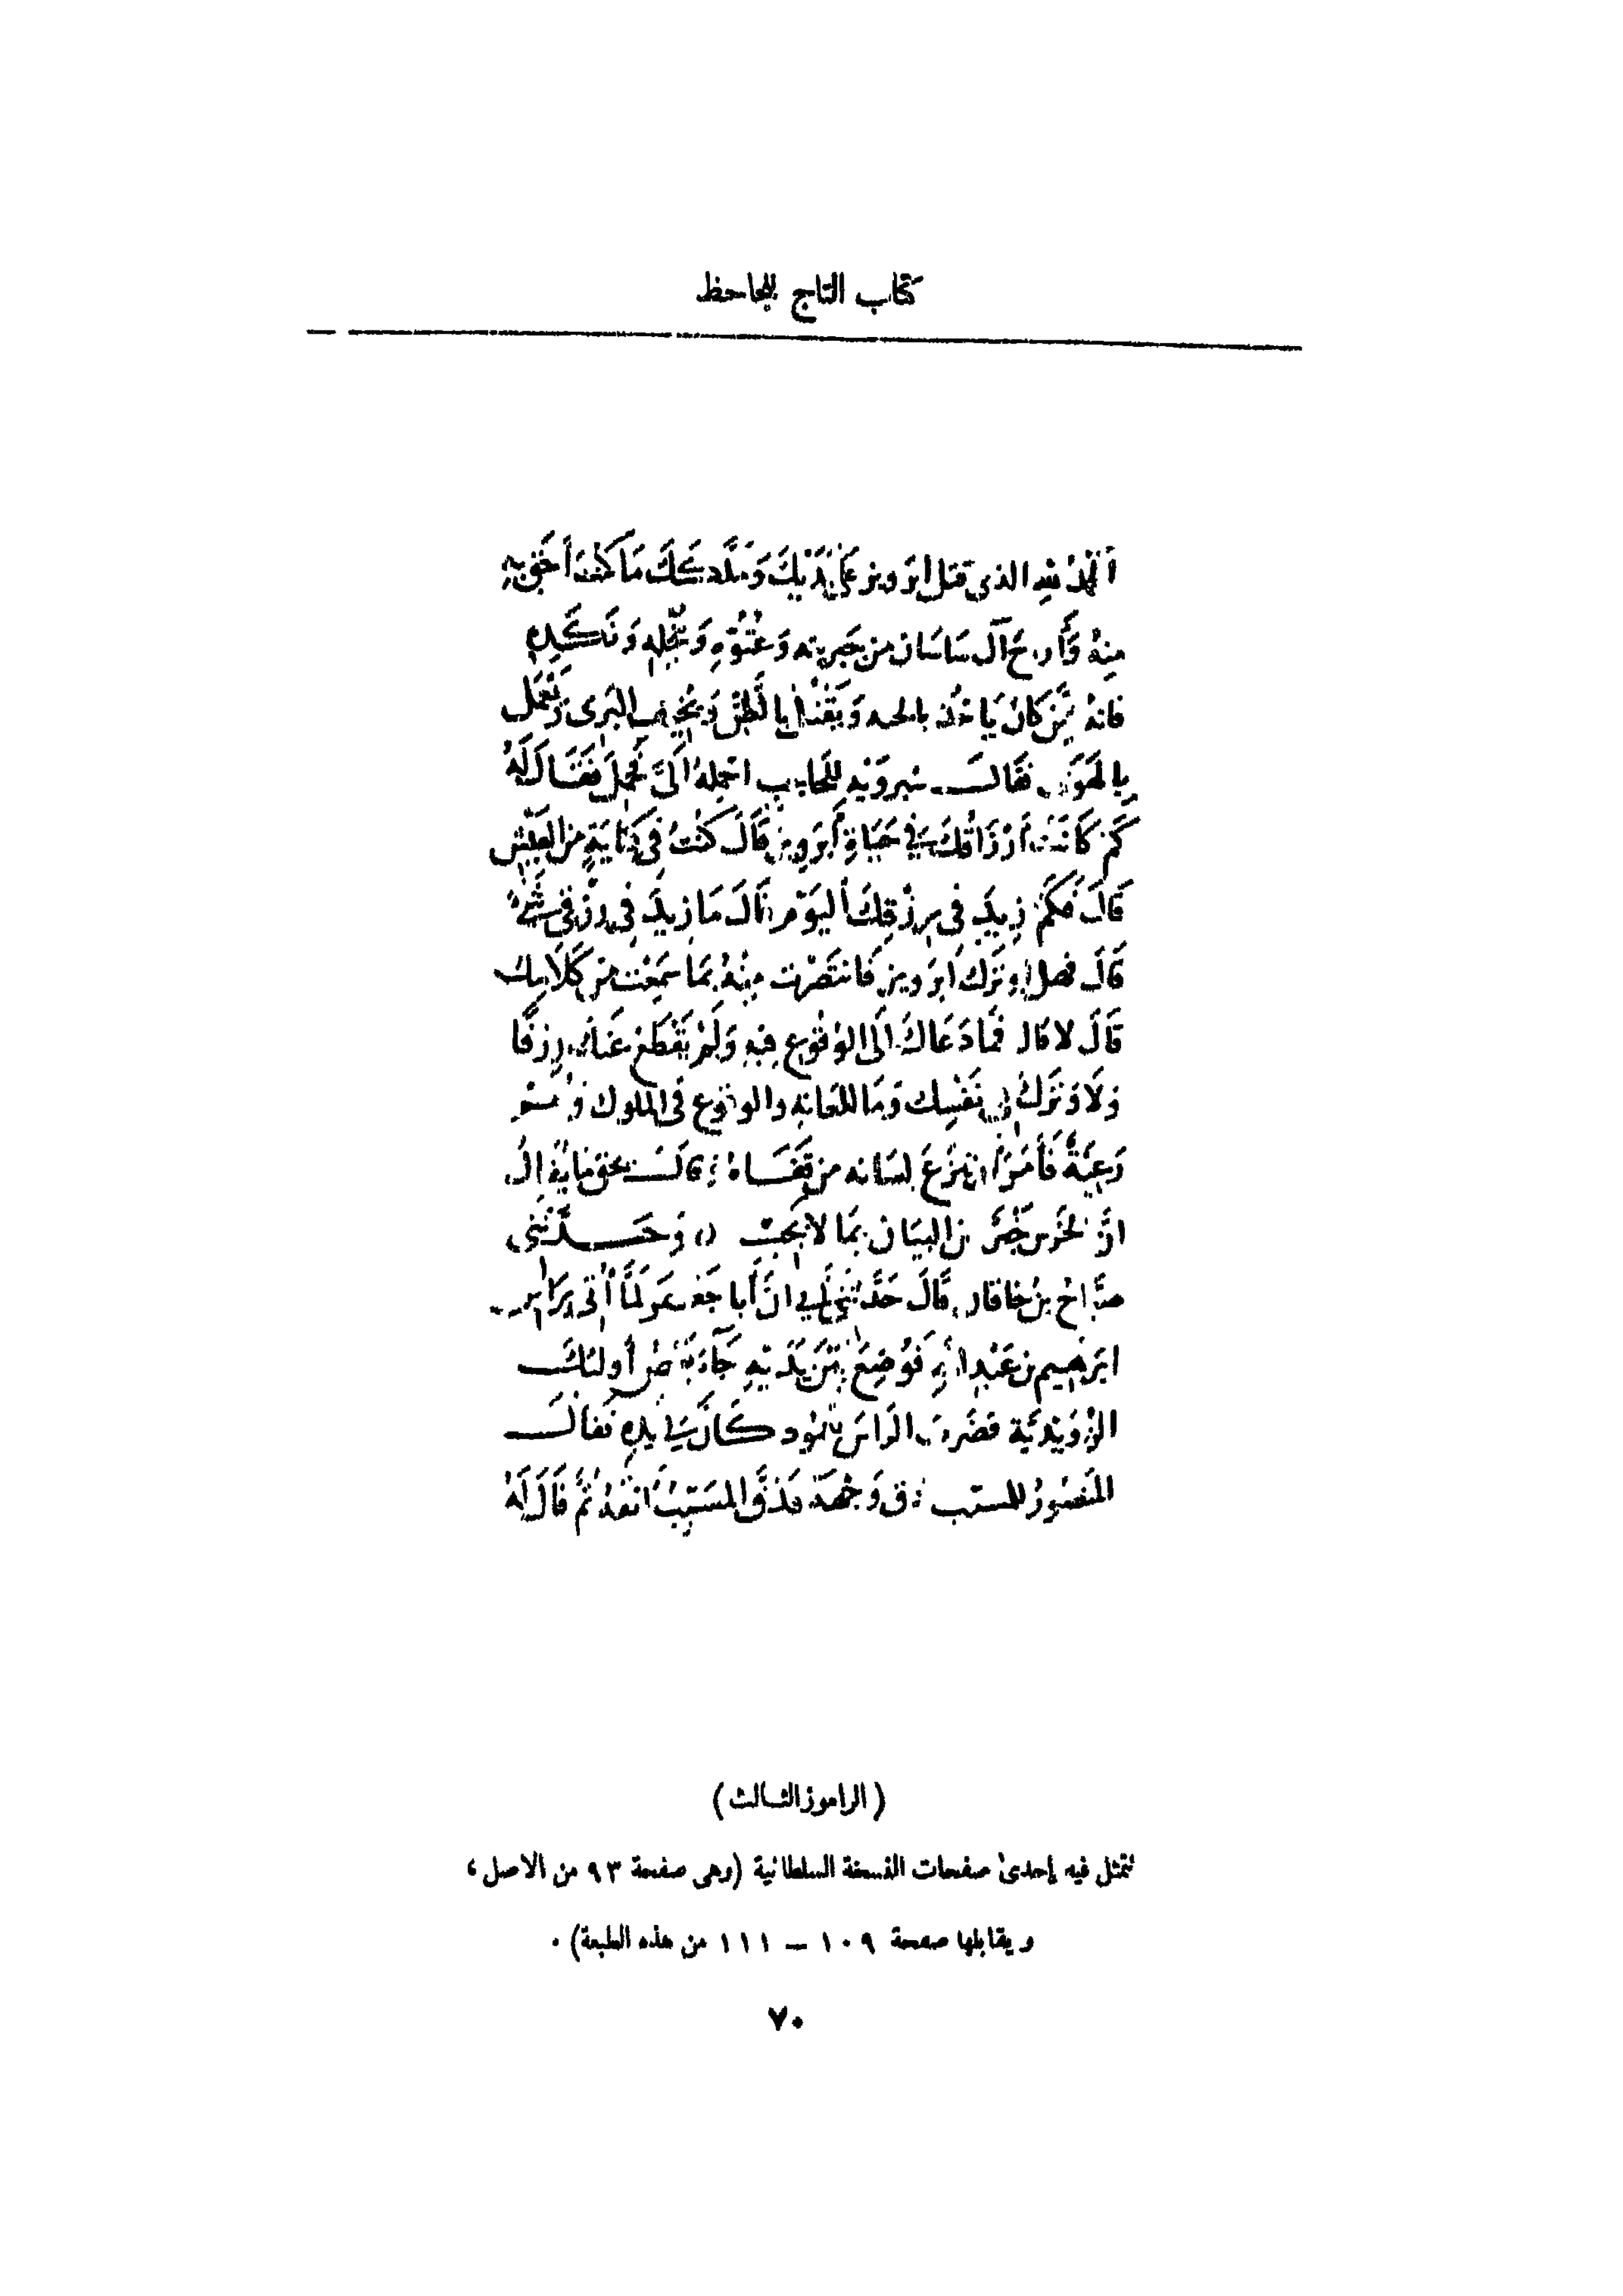 كتاب التاج للجاحظ
الحمد لله الذى قتل ابرويز على يديك وملكك ما كنت أحق به
منه وأراح آل ساسان من جبريته وعتوه وبخله ونكده
فانه ممن كان ياخذ بالحبه ويقتل بالظن ويخيف البرى ويعمل
بالهوى فقالــ شيرويه للحاجب احمله الىّ فحمل فقال له
كم كانت أرزاقك في حياة أبرويز قال كنت في كفاية من العيش
قال فكم زيد في رزقك اليوم قال ما زيد في رزقى شئ
قال فهل وترك ابرويز فانتصرت منه بما سمعت من كلامك
قال لا قال فما دعاك الى الوقوع فيه ولم يقطع عنك رزقا
ولا وترك في نفسك وما للعامة والوقوع فى الملوك وهم
رعية فأمر ان ينزع لسانه من قفاه وقالــ بحق ما يقال
ان الخرس خير من البيان بما لا يجب وحــدثنى
صباح بن خاقان قال حدثني أبي ان أبا جعفر لما أتى براس
ابرهيم بن عبد الله فوضع بين يديه جآءبه بعض أولئكــ
الراوندية فضرب الراس بعمود كان في يده فقالــ
المنصور للمسيب دق وجهه فدق المسيب انفه ثم قال له
(الراموز الثالث)
تتمثل فيه إحدىٰ صفحات النسخة السلطانية (وهى صفحة ٩٣ من الاصل ،
ويقابلها صفحة ١٠٩ – ١١١ من هذه الطبعة) .
٧٠